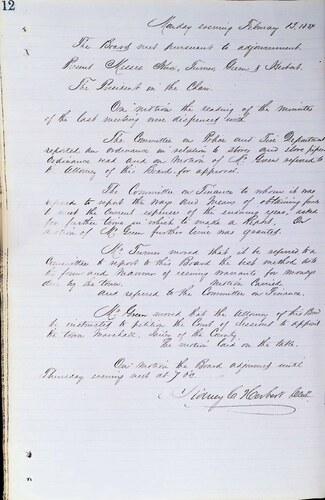 12
Monday evening February
The Board met pursuant to adjournment.
Present Messrs Turner, Green & Herbert.
The President in the Chair.
On motion the reading of the minutes
of the last meeting were dispensed with.
The Committee on Police and Fire Department
reported an ordinance in relation to stoves and stove pipes
Ordinance read and on motion of Mr Green referred to
Attorney of this Board for approval.
The Committee on Finance to whom it was
to report the ways and means of obtaining
to meet the current expenses of the ensuing year, asked
for further time in which to make a Report. On
motion of Mr Green further time was granted.
Mr Turner moved that it be referred to a
Committee to report to this Board the best method
form and manner of issuing warrants for moneys
due by the town. Motion Carried
and referred to the Committee on Finance.
Mr Green moved that the Attorney of this Board
be instructed to petition the Court of Sessions to appoint
the town Marshall, of the County
The motion laid on the table.
On motion the Board adjourned until
Thursday evening next at 7 Oc.
Sidney C Herbert